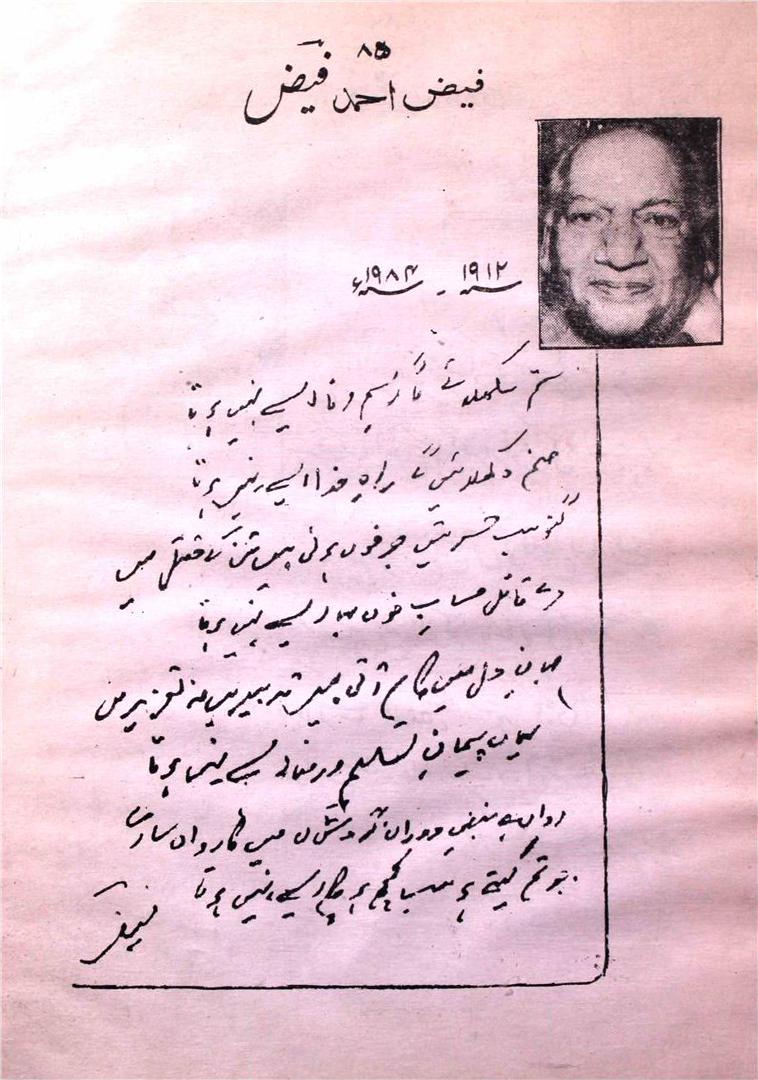 ۸۵
فیض احمد فیض
۱۹۱۲ - ۱۹۸۴ء
ستم سکھلائے گا رسمِ وفا ایسے نہیں ہوتا
صنم دکھلائیں گے راہِ خدا ایسے نہیں ہوتا
گنو سب حسرتیں جو خوں ہوئی ہیں تن کے مقتل میں
مرے قاتل حسابِ خوں بہا ایسے نہیں ہوتا
جہانِ دل میں کام آتی ہیں تدبیریں نہ تعزیریں
یہاں پیمانِ تسلیم و رضا ایسے نہیں ہوتا
رواں ہے نبضِ دوراں گردشوں میں سارے
جو تم کہتے ہو سب کچھ ہو چکا ایسے نہیں ہوتا
فیض